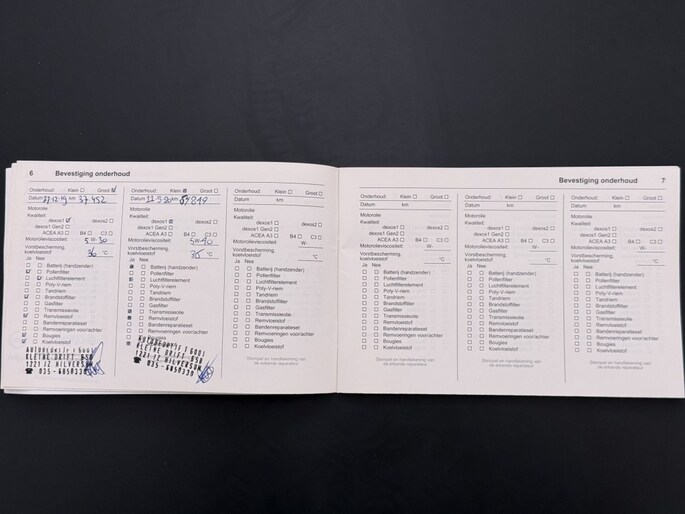 6 Bevestiging onderhoud
Onderhoud: Klein Groot
Datum km 37.452
Motorolie
Kwaliteit:
dexos1 dexos2
dexos1 Gen2
ACEA A3 B4 C3
Motorolieviscositeit: 5 W- 30
Vorstbescherming
koelvloeistof 36 °C
Ja Nee
Batterij (handzender)
Pollenfilter
Luchtfilterelement
Poly-V-riem
Tandriem
Brandstoffilter
Gasfilter
Transmissieolie
Remvloeistof
Bandenreparatieset
Remvoeringen voor/achter
Bougies
Koelvloeistof
KLEINE DRIFT
1221 JZ HILVERSUM
Onderhoud: Klein Groot
Datum km
Motorolie
Kwaliteit:
dexos1 dexos2
dexos1 Gen2
ACEA A3 B4 C3
Motorolieviscositeit: 5 W-
Vorstbescherming
koelvloeistof °C
Ja Nee
Batterij (handzender)
Pollenfilter
Luchtfilterelement
Poly-V-riem
Tandriem
Brandstoffilter
Gasfilter
Transmissieolie
Remvloeistof
Bandenreparatieset
Remvoeringen voor/achter
Bougies
KLEINE DRIFT
HILVERSUM
035 - 6050330
Onderhoud: Klein Groot
Datum km
Motorolie
Kwaliteit:
dexos1 dexos2
dexos1 Gen2
ACEA A3 B4 C3
Motorolieviscositeit: W-
Vorstbescherming
koelvloeistof °C
Ja Nee
Batterij (handzender)
Pollenfilter
Luchtfilterelement
Poly-V-riem
Tandriem
Brandstoffilter
Gasfilter
Transmissieolie
Remvloeistof
Bandenreparatieset
Remvoeringen voor/achter
Bougies
Koelvloeistof
Stempel en handtekening van
de erkende reparateur
Bevestiging onderhoud 7
Onderhoud: Klein Groot
Datum km
Motorolie
Kwaliteit:
dexos1 dexos2
dexos1 Gen2
ACEA A3 B4 C3
Motorolieviscositeit: W-
Vorstbescherming
koelvloeistof °C
Ja Nee
Batterij (handzender)
Pollenfilter
Luchtfilterelement
Poly-V-riem
Tandriem
Brandstoffilter
Gasfilter
Transmissieolie
Remvloeistof
Bandenreparatieset
Remvoeringen voor/achter
Bougies
Koelvloeistof
Stempel en handtekening van
de erkende reparateur
Onderhoud: Klein Groot
Datum km
Motorolie
Kwaliteit:
dexos1 dexos2
dexos1 Gen2
ACEA A3 B4 C3
Motorolieviscositeit: W-
Vorstbescherming
koelvloeistof °C
Ja Nee
Batterij (handzender)
Pollenfilter
Luchtfilterelement
Poly-V-riem
Tandriem
Brandstoffilter
Gasfilter
Transmissieolie
Remvloeistof
Bandenreparatieset
Remvoeringen voor/achter
Bougies
Koelvloeistof
Stempel en handtekening van
de erkende reparateur
Onderhoud: Klein Groot
Datum km
Motorolie
Kwaliteit:
dexos1 dexos2
dexos1 Gen2
ACEA A3 B4 C3
Motorolieviscositeit: W-
Vorstbescherming
koelvloeistof °C
Ja Nee
Batterij (handzender)
Pollenfilter
Luchtfilterelement
Poly-V-riem
Tandriem
Brandstoffilter
Gasfilter
Transmissieolie
Remvloeistof
Bandenreparatieset
Remvoeringen voor/achter
Bougies
Koelvloeistof
Stempel en handtekening van
de erkende reparateur